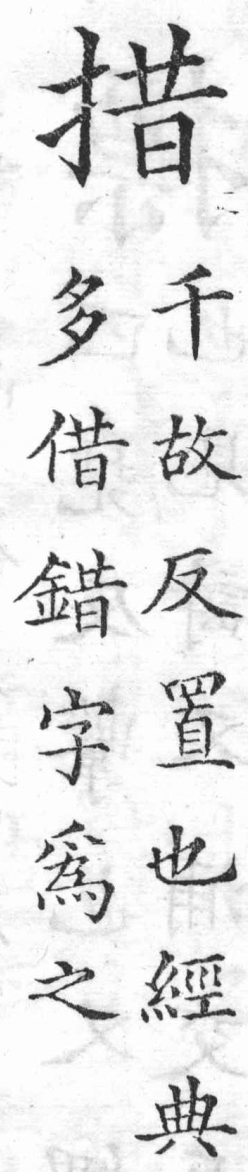 措
千故反置也經典
多借錯字爲之